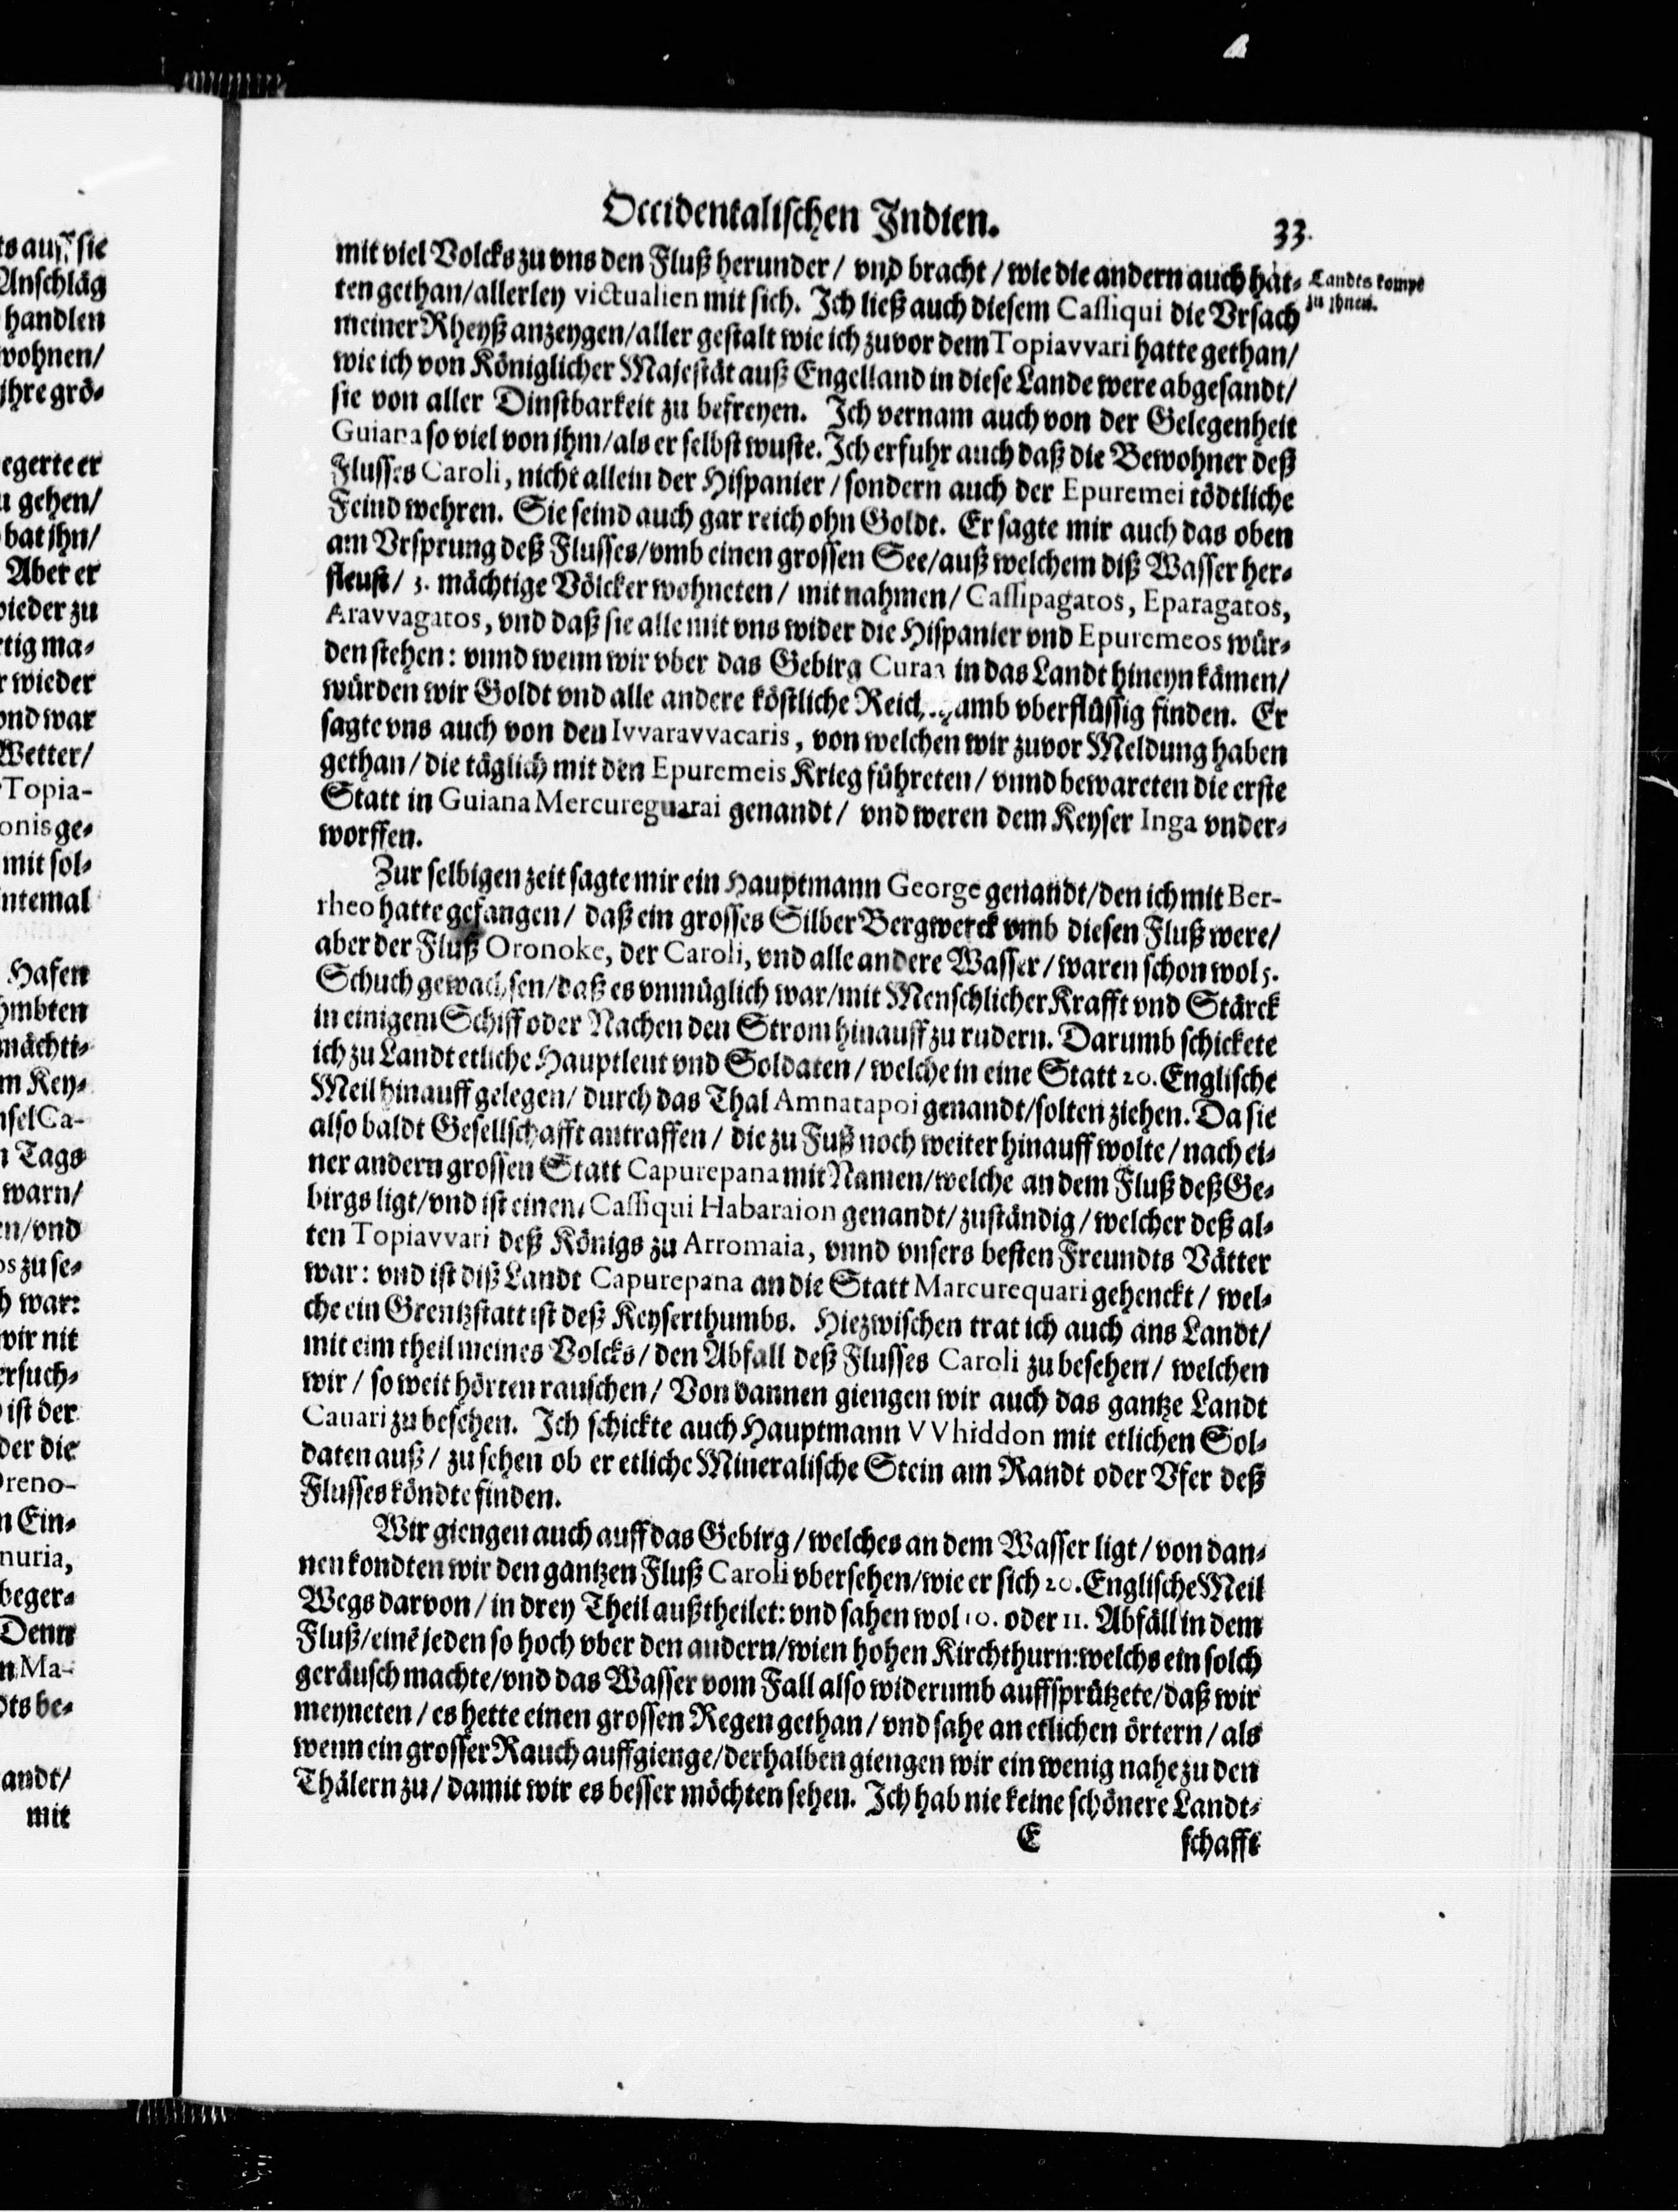 Occidentalischen Indien.
33.
mit viel Volcks zu vns den Fluß herunder / vnd bracht / wie die andern auch hat⸗
Landts kompt
zu ihnen.
ten gethan / allerley victualien mit sich. Ich ließ auch diesem Cassiqui die Vrsach
meiner Rheyß anzeygen / aller gestalt wie ich zuvor dem Topiavvari hatte gethan /
wie ich von Königlicher Majestät auß Engelland in diese Lande were abgesandt /
sie von aller Dinstbarkeit zu befreyen. Ich vernam auch von der Gelegenheit
Guiana so viel von ihm / als er selbst wuste. Ich erfuhr auch daß die Bewohner deß
Flusses Caroli, nicht allein der Hispanier / sondern auch der Epuremei tödtliche
Feind wehren. Sie seind auch gar reich ohn Goldt. Er sagte mir auch das oben
am Vrsprung deß Flusses / vmb einen grossen See / auß welchem diß Wasser her⸗
fleust / 3. mächtige Völcker wohneten / mit nahmen / Cassipagatos, Eparagatos,
Aravvagatos, vnd daß sie alle mit vns wider die Hispanier vnd Epuremeos wür⸗
den stehen: vnnd wenn wir vber das Gebirg Curaa in das Landt hineyn kämen /
würden wir Goldt vnd alle andere köstliche Reichthumb vberflüssig finden. Er
sagte vns auch von den Ivvaravvacaris, von welchen wir zuvor Meldung haben
gethan / die täglich mit den Epuremeis Krieg führeten / vnnd bewareten die erste
Statt in Guiana Mercureguarai genandt / vnd weren dem Keyser Inga vnder⸗
worffen.
Zur selbigen zeit sagte mir ein Hauptmann George genandt / den ich mit Ber-
rheo hatte gefangen / daß ein grosses Silber Bergwerck vmb diesen Fluß were /
aber der Fluß Oronoke, der Caroli, vnd alle andere Wasser / waren schon wol 5.
Schuch gewachsen / daß es vnmüglich war / mit Menschlicher Krafft vnd Stärck
in einigem Schiff oder Nachen den Strom hinauff zu rudern. Darumb schickete
ich zu Landt etliche Hauptleut vnd Soldaten / welche in eine Statt 20. Englische
Meil hinauff gelegen / durch das Thal Amnatapoi genandt / solten ziehen. Da sie
also baldt Gesellschafft antraffen / die zu Fuß noch weiter hinauff wolte / nach ei⸗
ner andern grossen Statt Capurepana mit Namen / welche an dem Fluß deß Ge⸗
birgs ligt / vnd ist einem Cassiqui Habaraion genandt / zuständig / welcher deß al⸗
ten Topiavvari deß Königs zu Arromaia, vnnd vnsers besten Freundts Vätter
war: vnd ist diß Landt Capurepana an die Statt Marcurequari gehenckt / wel⸗
che ein Grentzstatt ist deß Keyserthumbs. Hiezwischen trat ich auch ans Landt /
mit eim theil meines Volcks / den Abfall deß Flusses Caroli zu besehen / welchen
wir / so weit hörten rauschen / Von dannen giengen wir auch das gantze Landt
Cauari zu besehen. Ich schickte auch Hauptmann VVhiddon mit etlichen Sol⸗
daten auß / zu sehen ob er etliche Mineralische Stein am Randt oder Vfer deß
Flusses köndte finden.
Wir giengen auch auff das Gebirg / welches an dem Wasser ligt / von dan⸗
nen kondten wir den gantzen Fluß Caroli vbersehen / wie er sich 20. Englische Meil
Wegs darvon / in drey Theil außtheilet: vnd sahen wol 10. oder 11. Abfäll in dem
Fluß / einē jeden so hoch vber den andern / wien hohen Kirchthurn: welchs ein solch
geräusch machte / vnd das Wasser vom Fall also widerumb auffsprützete / daß wir
meyneten / es hette einen grossen Regen gethan / vnd sahe an etlichen örtern / als
wenn ein grosser Rauch auffgienge / derhalben giengen wir ein wenig nahe zu den
Thälern zu / damit wir es besser möchten sehen. Ich hab nie keine schönere Landt⸗
E
schafft